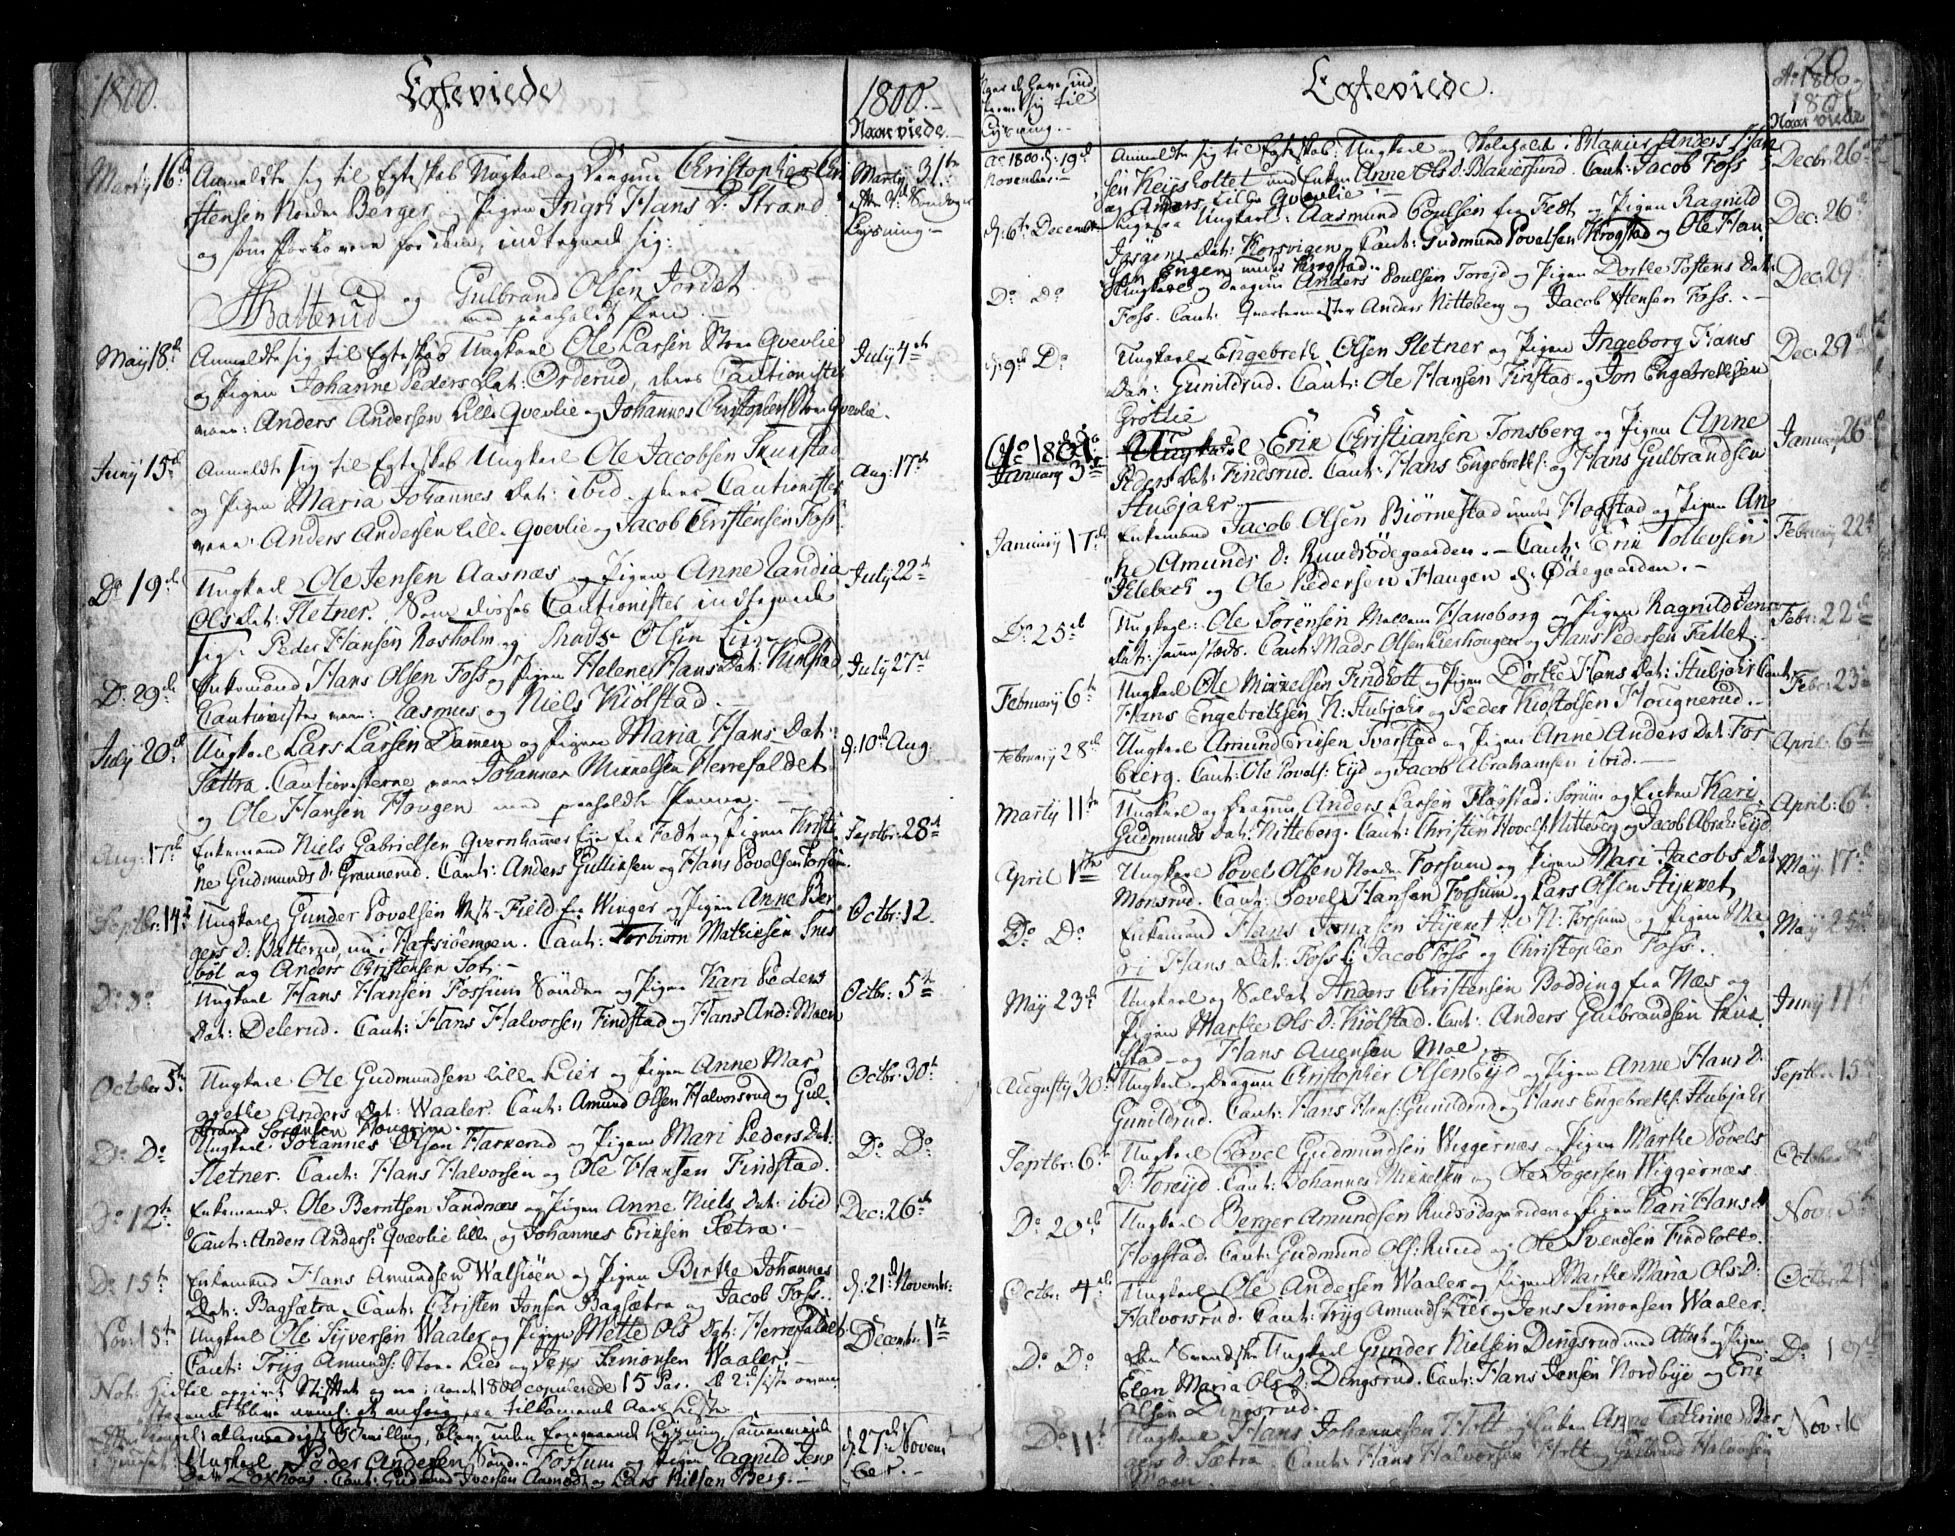 1800. Egteviede 1800.
Naar viede.
Martÿ 16de Anmeldte sig til Egteskab Ungkarl og Dragun Christopher Chri
stensen Nordre Berger og Pigen Ingri Hans D: Strand
og som Forlovere for dem, indtegned sig:
Martÿ 31te
efter 2de Søndages
Lysning.
Batterud og Gulbrand Olsen Jordet
med paaholdt Pen.
Maÿ 18de Anmeldte sig til Egteskab Ungkarl Ole Larsen Store Qvevlie
og Pigen Johanne Peders Dat: Orderud, deres Cautionister
vare: Anders Andersen Lille Qvevlie og Johannes Christophers: Store Qvevlie.
Julÿ 4de
Junÿ 15de Anmeldte sig til Egteskab Ungkarl Ole Jacobsen Skukstad
og Pigen Maria Johannes Dat: ibid. deres Cautionister
vare: Anders Andersen Lille Qvevlie og Jacob Christensen Foss.
Aug: 17de
Do 19de Ungkarl Ole Jensen Aasnæs og Pigen Anne Candia
Ols Dat: Sletner. Som disses Cautionister indtegnede
sig: Peder Hansen Nosholm og Mads Olsen Lier
Julÿ 22de
Do 29de Enkemand Hans Olsen Foss og Pigen Helene Hans Dat: Kiølstad
Cautionister vare: Rasmus og Niels Kiølstad.
Julÿ 27de
Julÿ 20de Ungkarl Lars Larsen Damen og Pigen Maria Hans Dat:
Sættra. Cautionisterne vare Johannes Mikkelsen Herrefaldet
og Ole Hansen Hougen med paaholdte Penne.
d: 10de Aug:
Aug: 17de Enkemand Niels Gabrielsen Qvernhammer Eje fra Fedt og Pigen Kristi
ne Gudmunds D: Grannerud. Caut: Anders Gulliksen og Hans Povelsen Forsum.
Septbr: 28de
Septbr: 14de Ungkarl Gunder Povelsen Vest-Field fra Winger og Pigen Anne Ber
gers D: Batterud, nu i Haksiøemoen. Caut: Torbiørn Mathisen Snes
bøl og Anders Christensen Sot.
Octbr: 12.
Do Do Ungkarl Hans Hansen Fossum Søndre og Pigen Kari Peders
Dat: Delerud. Caut: Hans Halvorsen Findstad og Hans And: Moen
Octbr: 5te
October 5te Ungkarl Ole Gudmundsen Lille Lier og Pigen Anne Mar
grethe Anders Dat: Waaler. Caut: Amund Olsen Halvorsrud og Gul
brand Sørensen Hougrim.
Octbr: 30te
Do Do Ungkarl Johannes Olsen Harkerud og Pigen Mari Peders Dat:
Sletner. Caut: Hans Halvorsen og Ole Hansen Findstad.
Do Do
Do 12te Enkemand Ole Berntsen Sandnæs og Pigen Anne Niels Dat: ibid
Caut: Anders Anders: Qvævlie lille og Johannes Eriksen Sætra.
Dec: 26de
Do 15te Enkemand Hans Amundsen Walsiøen og Pigen Birthe Johannes
Dat: Bagsætra. Caut: Christen Jonsen Bagsætra og Jacob Foss.
d: 21de Novembr:
Nov: 15te Ungkarl Ole Siversen Waaler og Pigen Mette Ols Dat: Herrefaldet
Caut: Tryg Amunds: Store Lier og Jens Simonsen Waaler.
Decembr: 1te
Not: Hidtil opgivet Stiftet og ere i Aaret 1800 copulerede 15 Par. De 2de siste ovenn
staaende bleve
allernaadigst Bevilling, bleve uden foregaaende Lysning, sammenviede
Ungkarl Peder Andersen Søndre Fossum og Pigen Ragnild Jens
Dat: Loxhoug. Caut: Gudmund Iversen Aamodt og Lars Nielsen Berg.
d: 27de Novem
ber.
Naar de have ind
fundet sig til
Lysning.
Egteviede.
20
Ao 1800
1801
Naar viede
Ao 1800 d: 19de
November
Anmeldte sig til Egteskab: Ungkarl og Anders Han
sen Keysholtet med Enken Anne Ols D: Caut: Jacob Foss
og Anders Lille Qvevlie
Decbr: 26de
d: 6te December Ligesaa Ungkarl: Aasmund Poulsen fra Fedt og Pigen Ragnild
Jørgens Dat: Korsvigen. Caut: Gudmund Povelsen Krogstad og Ole Han
sen Engen under Krogstad.
Dec: 26de
Do Do Ungkarl og Dragun Anders Poulsen Toreyd og Pigen Dorthe Tostens Dat:
Foss. Caut: Quartermester Anders Nitteberg og Jacob Hensen Foss.
Dec: 29de
d: 9de Do Ungkarl Engebreth Olsen Sletner og Pigen Ingeborg Hans
Dat: Gunildrud. Caut: Ole Hansen Finstad og Jon Engebrethsen
Grøtlie
Dec: 29de
Ao 1801.
January 3de Ungkarl Erik Christiansen Tonsberg og Pigen Anne
Peders Dat: Findsrud. Caut: Hans Engebreths: og Hans Gulbrandsen
Stubjahr.
January 26de
January 17de Enkemand Jacob Olsen Biørnestad under Hogstad og Pigen An
ne Amunds D: Rundsødegaarden. Caut: Erik Tollevsen
Melebek og Ole Pedersen Haugen d: Ødegaarden.
February 22de
Do 25de Ungkarl: Ole Sørensen Mellem Haneborg og Pigen Ragnild Jens
Dat: sammestæds. Caut: Mads Olsen Lierhougen og Hans Pedersen Fallet.
Febr: 22de
February 6te Ungkarl Ole Mikkelsen Findholt og Pigen Dorthe Hans Dat: Stubjahr Caut
Hans Engebrethsen N: Stubjahr og Peder Kiostolsen Hougnerud.
Febr: 23de
February 28de Ungkarl Amund Eriksen Tvarstad og Pigen Anne Anders Dat: Tor
bierg. Caut: Ole Povels: Eyd og Jacob Abrahamsen ibid.
April: 6te
Martÿ 11te Ungkarl og Dragun Anders Larsen Fløgstad i Sørum og Enken Kari
Gudmunds Dat: Nitteberg. Caut: Christen Hovels: Nitteberg og Jacob Abrah: Eyd.
April: 6te
April 17de Ungkarl Povel Olsen Nordre Forsum og Pigen Mari Jacobs Dat
Monsrud. Caut: Povel Hansen Forsum og Lars Olsen Stykket
Maÿ 17de
Do Do Enkemand Hans Jonasen Stykket u: N: Fossum og Pigen Ma
ri Hans Dat: Foss. C: Jacob Foss og Christopher Foss.
Maÿ 25de
Maÿ 23de Ungkarl og Soldat Anders Christensen Bodding fra Næs og
Pigen Marthe Ols D: Kiølstad. Caut: Anders Gulbrandsen Skuk
stad og Hans Auensen Moe.
Junÿ 11te
Augusty 30te Ungkarl og Dragun Christopher Olsen Eyd og Pigen Anne Hans D:
Gunildrud. Caut: Hans Hans: Gunildrud og Hans Engebreths: Stubjahr
Septbr: 15de
Septbr: 6te Ungkarl Povel Gudmundsen Wiggernæs og Pigen Marthe Povels
D: Toreyd. Caut: Johannes Mikkelsen og Ole Jogersen Wiggernæs.
October
Do 20de Ungkarl Berger Amundsen Rudsødegaarden og Pigen Kari Hans D
Hogstad. Caut: Gudmund Ols: Ruud og Ole Svendsen Findholt.
Nov: 5te
Octbr: 4de Ungkarl Ole Andersen Waaler og Pigen Marthe Maria Ols D:
Halvorsrud. Caut: Tryg Amunds: Lier og Jens Simonsen Waaler.
Octbr: 21
Do Do Den Svendske Ungkarl Gunder Nielsen Dingsrud med Attest og Pigen
Elen Maria Ols D: Dingsrud. Caut: Hans Jensen Nordbye og Erik
Olsen Dingsrud.
Do 19de
Do 11te Ungkarl Hans Johannesen Holt og Enken Anne Cathrine Ber
gers D: Sætra. Caut: Hans Halvorsen Holt og Gulbrand Halvorsen
Moen.
Nov: